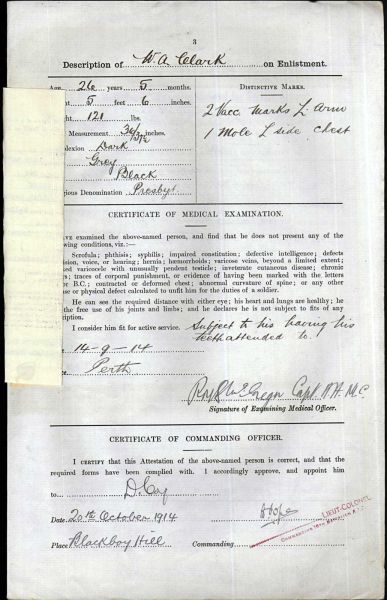 3
Description of W. A. Clark on Enlistment.
Age 26 years 5 months.
5 feet 6 inches.
121 lbs.
Measurement 34/37½
Dark
Grey
Black
Denomination Presbyt
DISTINCTIVE MARKS.
2 Vacc marks L. Arm
1 Mole L side chest
CERTIFICATE OF MEDICAL EXAMINATION.
examined the above-named person, and find that he does not present any of the
conditions, viz.:—
Scrofula; phthisis; syphilis; impaired constitution; defective intelligence; defects
vision, voice, or hearing; hernia; hæmorrhoids; varicose veins, beyond a limited extent;
varicocele with unusually pendent testicle; inveterate cutaneous disease; chronic
traces of corporal punishment, or evidence of having been marked with the letters
or B.C.; contracted or deformed chest; abnormal curvature of spine; or any other
or physical defect calculated to unfit him for the duties of a soldier.
He can see the required distance with either eye; his heart and lungs are healthy; he
the free use of his joints and limbs; and he declares he is not subject to fits of any
I consider him fit for active service. Subject to his having his
teeth attended to.
14-9-14
Perth
Capt.
Signature of Examining Medical Officer.
CERTIFICATE OF COMMANDING OFFICER.
I CERTIFY that this Attestation of the above-named person is correct, and that the
required forms have been complied with. I accordingly approve, and appoint him
to D. Coy
Date 20th October 1914
Place Blackboy Hill
Commanding
LIEUT-COLONEL